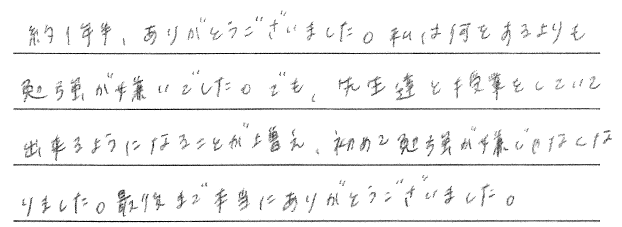 約1年半、ありがとうございました。私は何をするよりも
勉強が嫌いでした。でも、先生達と授業をしていて
出来るようになることが増え、初めて勉強が嫌じゃなくな
りました。最後まで本当にありがとうございました。